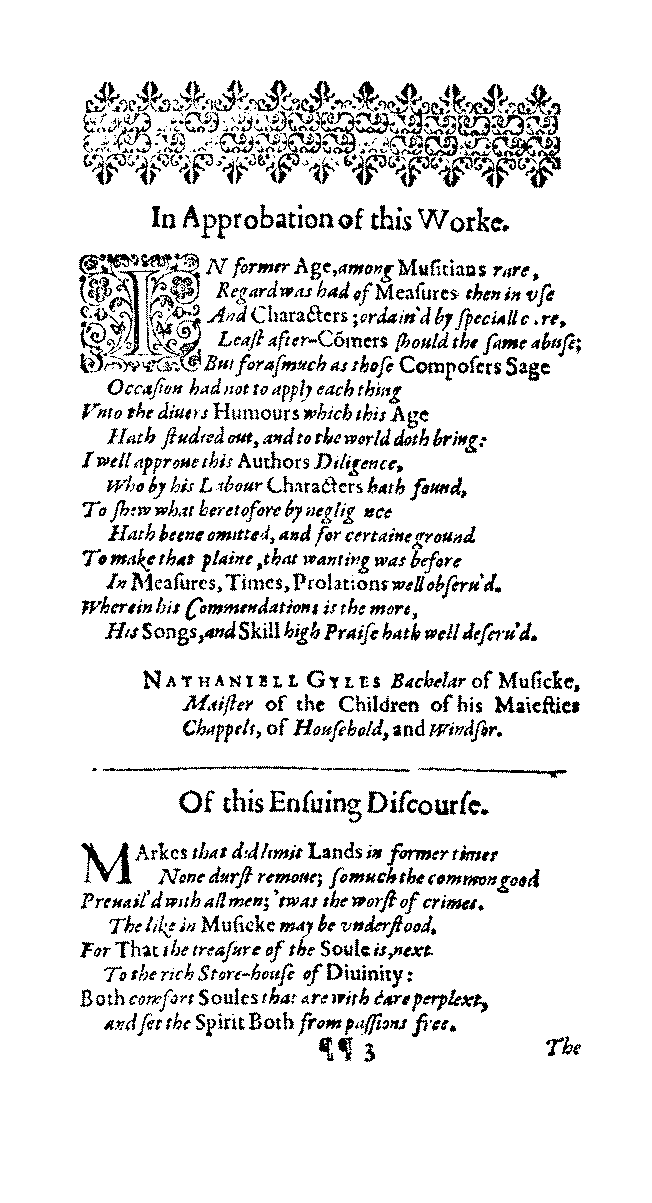 In Approbation of this Worke.
IN former Age, among Muſitians rare,
Regard was had of Meaſures then in vſe
And Characters; ordain'd by ſpeciall c.re,
Leaſt after-Cōmers ſhould the ſame abuſe;
But foraſmuch as thoſe Compoſers Sage
Occaſion had not to apply each thing
Vnto the diuers Humours which this Age
Hath ſtudied out, and to the world doth bring:
I well approue this Authors Diligence,
Who by his Labour Characters hath found,
To ſhew what heretofore by neglig nce
Hath beene omitted, and for certaine ground
To make that plaine, that wanting was before
In Meaſures, Times, Prolations well obſeru'd.
Wherein his Commendations is the more,
His Songs, and Skill high Praiſe hath well deſeru'd.
NATHANIELL GYLES Bachelar of Muſicke,
Maiſter of the Children of his Maieſties
Chappels, of Houſehold, and Windſor.
Of this Enſuing Diſcourſe.
MArkes that did limit Lands in former times
None durſt remoue; ſo much the common good
Preuail'd with all men; 'twas the worſt of crimes.
The like in Muſicke may be vnderſtood,
For That the treaſure of the Soule is, next
To the rich Store-houſe of Diuinity:
Both comfort Soules that are with care perplext,
and ſet the Spirit Both from paſſions free.
¶¶ 3 The